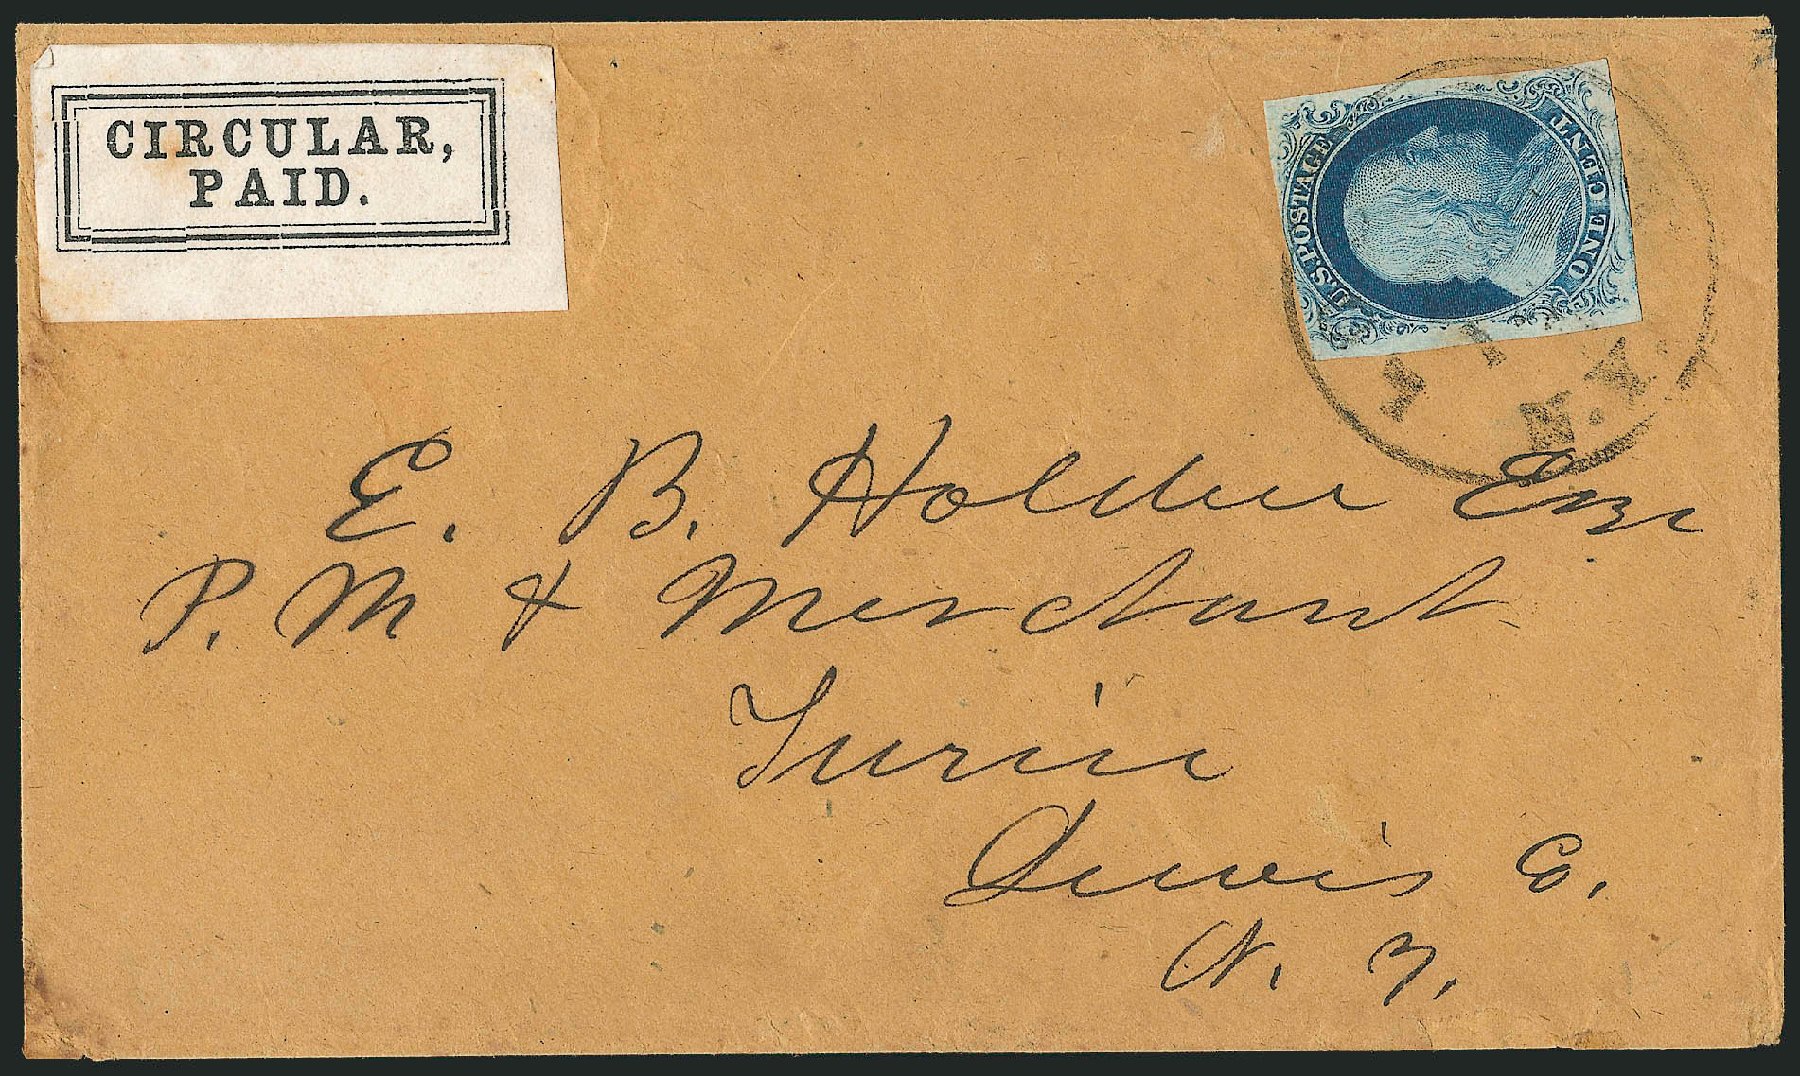 CIRCULAR,
PAID.
U.S. POSTAGE
ONE CENT
N.Y.
E. B. Holden Esqr
P. M & Merchant
Turin
Lewis Co.
N. Y.